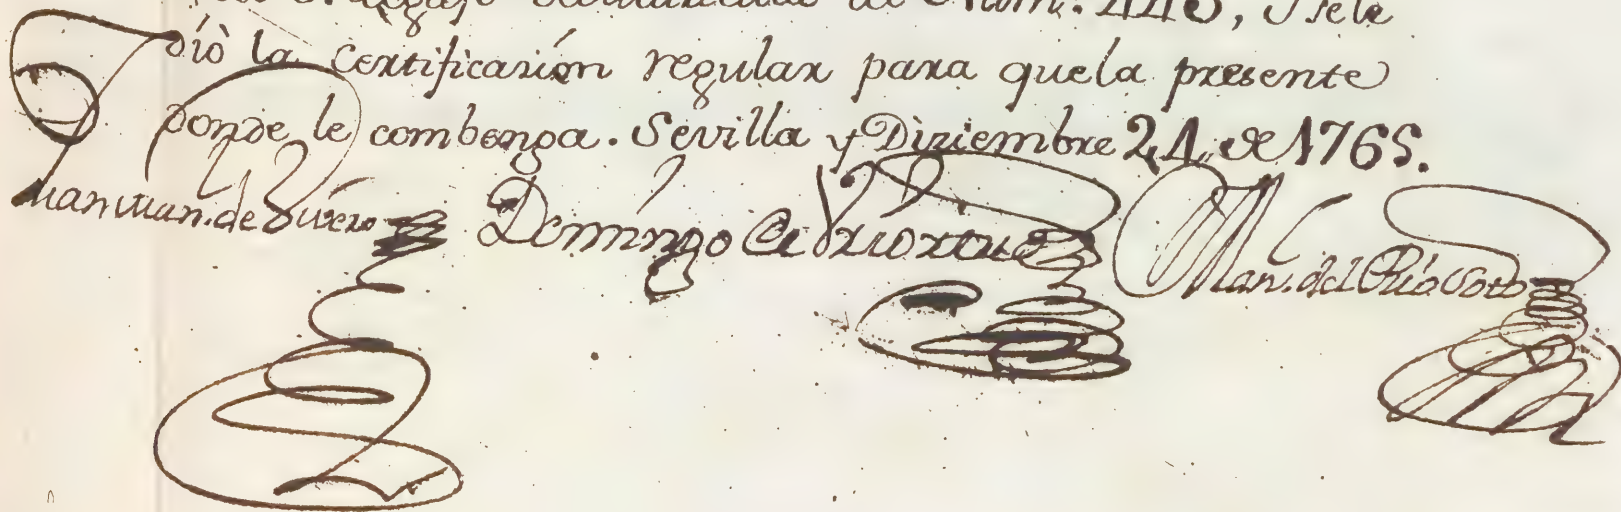 Num. 443, Y sele
diò la certificazión regular para quela presente
donde le combenga. Sevilla y Diziembre 21,, de 1765.
Juan Man. de Vivero Domingo de Man. del Rio Soto